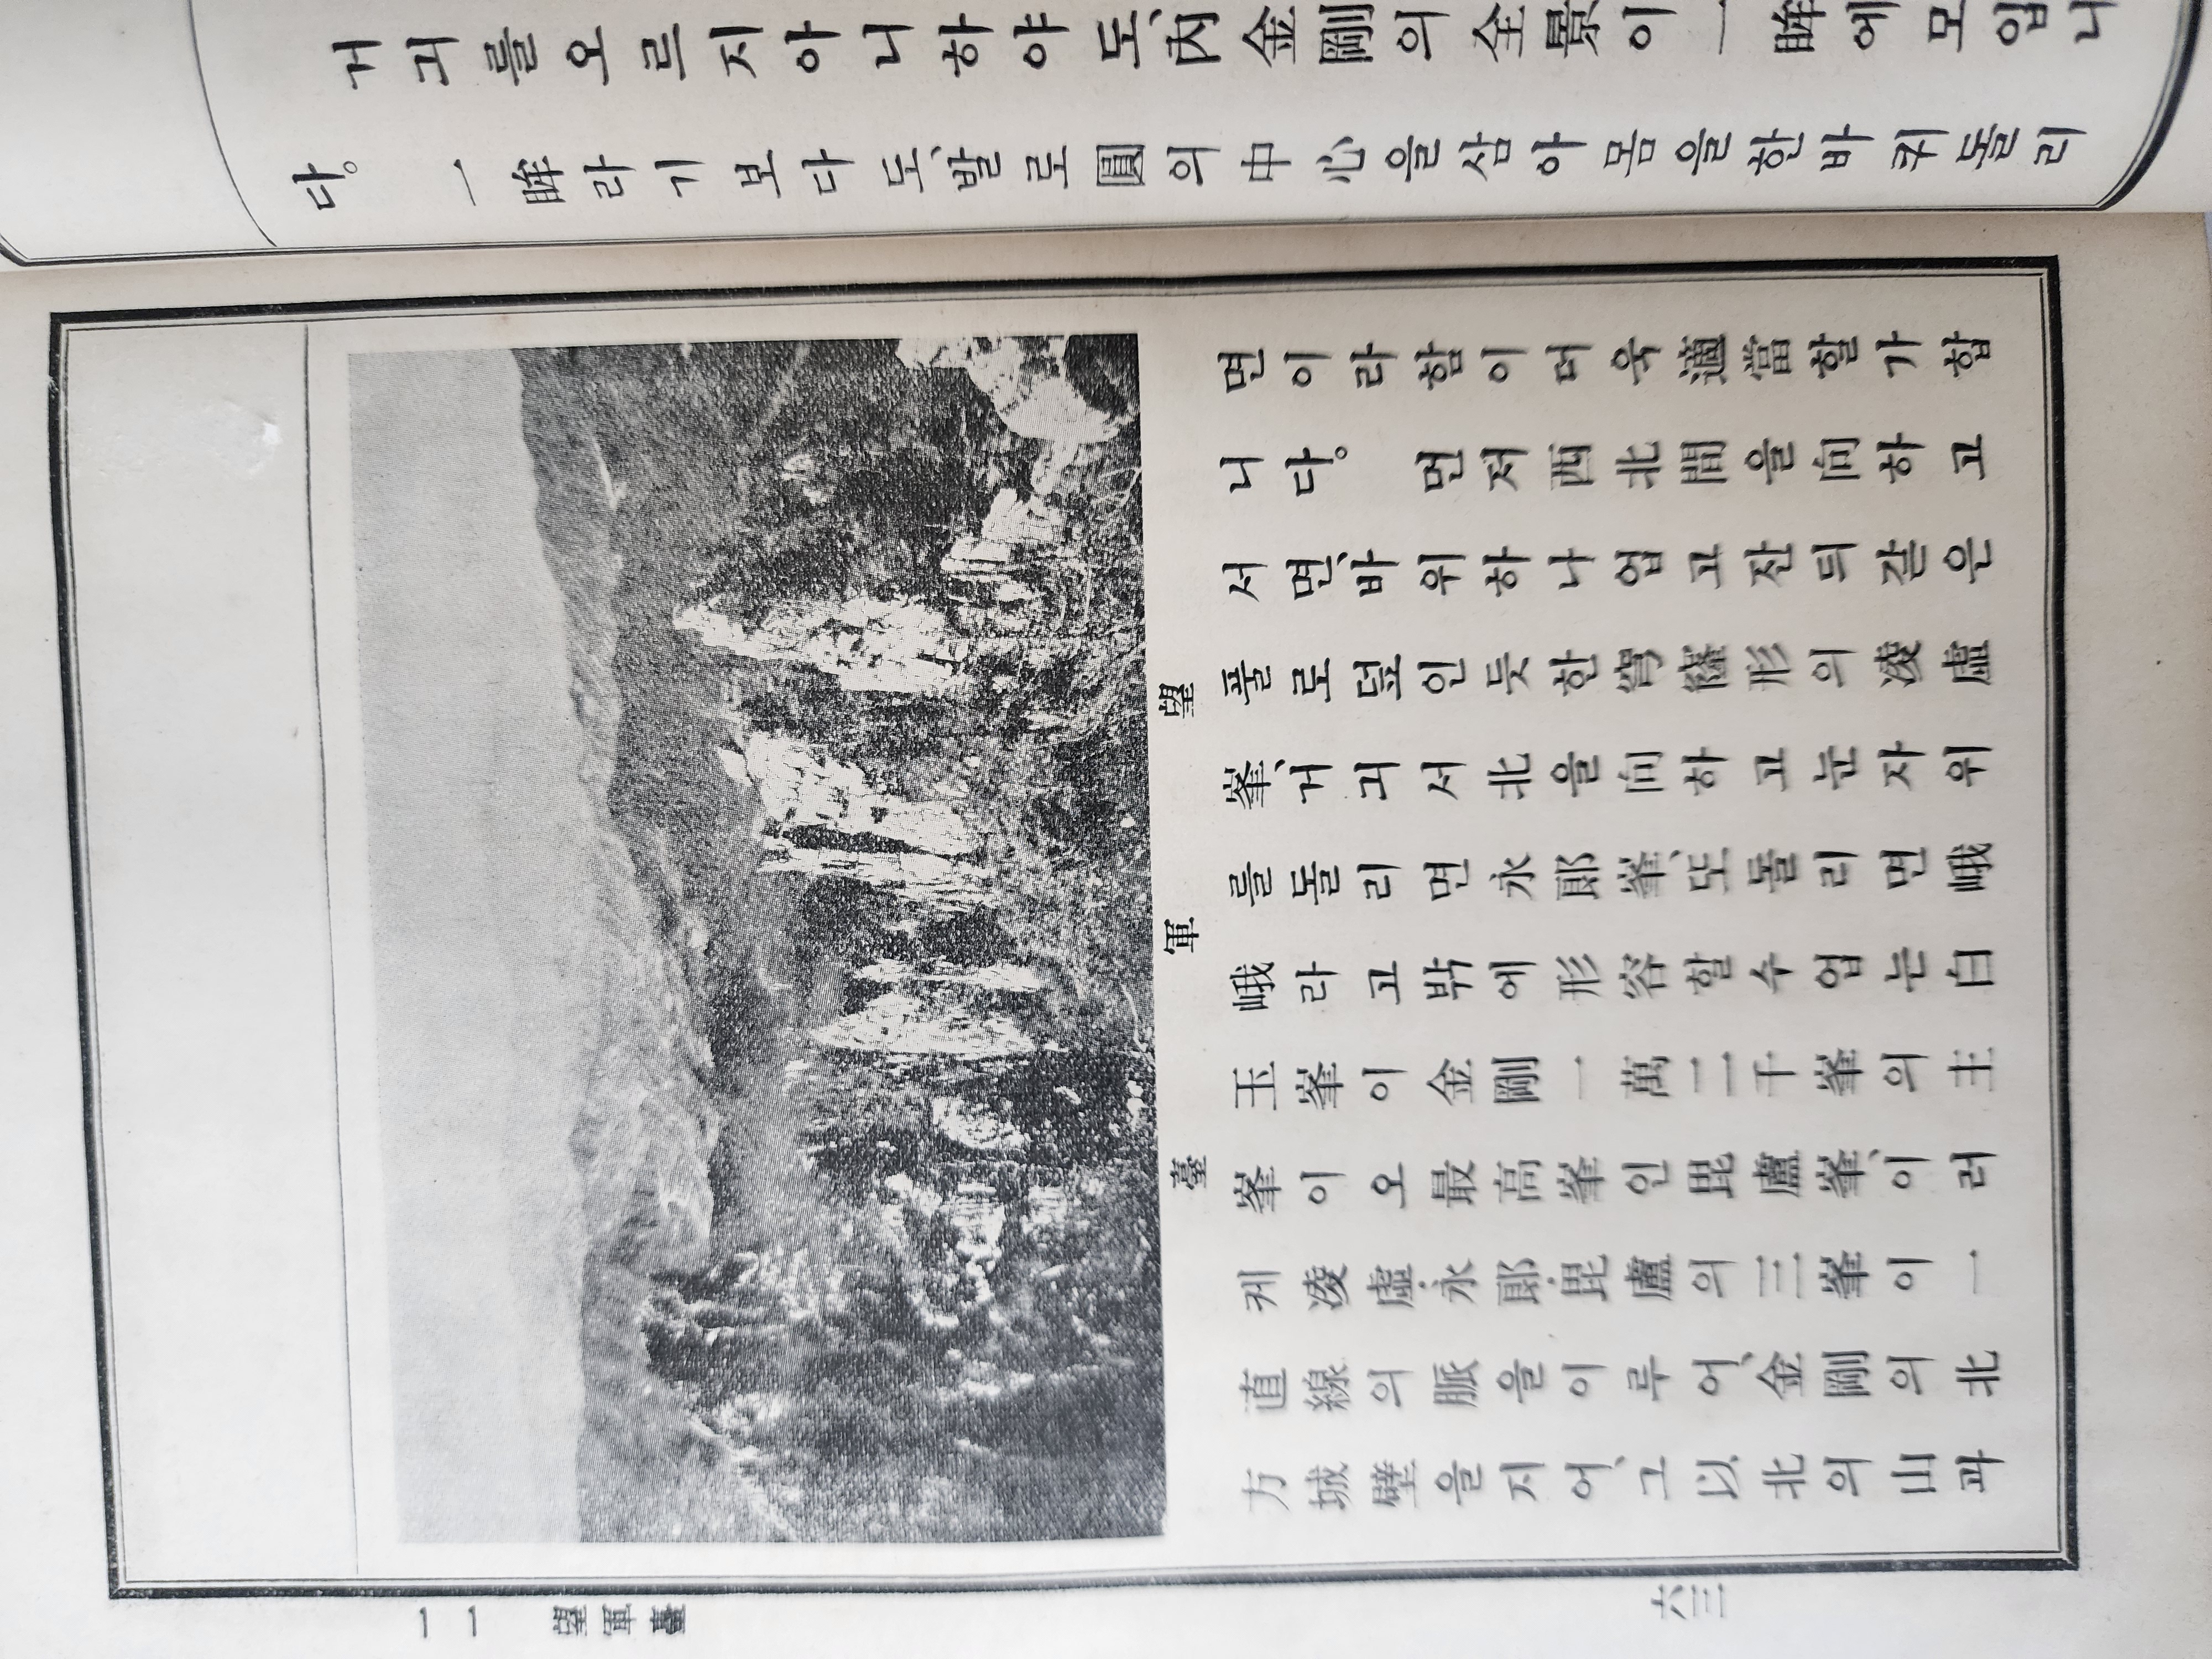 거긔를오르지아니하야도、內金剛의全景이一眸에모입니
다。 一眸라기보다도、발로圓의中心을삼아몸을한바퀴돌리
면이라함이더욱適當할가합
니다。 먼저西北間을向하고
서면、바위하나업고잔듸같은
풀로덮인듯한穹窿形의凌虛
峯、거긔서北을向하고눈자위
를돌리면永郞峯、또돌리면峨
峨라고밖에形容할수업는白
玉峯이金剛一萬二千峯의主
峯이오最高峯인毘盧峯、이러
케凌虛·永郞·毘盧의三峯이一
直線의脈을이루어、金剛의北
方城壁을지어、그以北의山과
望軍臺
一一 望軍臺
六三